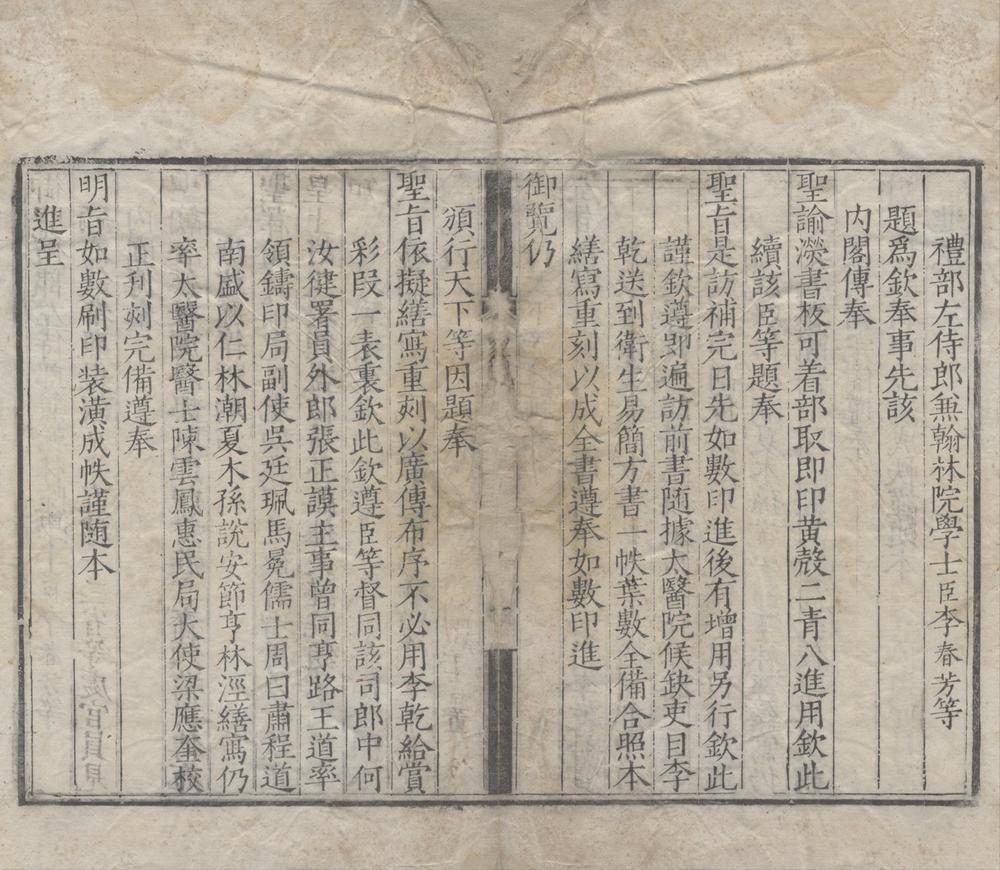 禮部左侍郎兼翰林院學士臣李春芳等
題爲欽奉事先該
内閣傳奉
聖諭濙書板可着部取即印黄殼二青八進用欽此
續該臣等題奉
聖旨是訪補完日先如數印進後有增用另行欽此
謹欽遵即遍訪前書隨據太醫院候缺吏目李
乾送到衛生易簡方書一帙葉數全備合照本
繕寫重刻以成全書遵奉如數印進
御覽仍
頒行天下等因題奉
聖旨依擬繕寫重刻以廣傳布序不必用李乾給賞
彩段一表裏欽此欽遵臣等督同該司郎中何
汝健署員外郎張正謨主事曾同亨路王道率
領鑄印局副使吳廷珮馬冕儒士周曰肅程道
南盛以仁林潮夏木孫説安節亨林涇繕寫仍
率太醫院醫士陳雲鳳惠民局大使梁應奎校
正刋刻完備遵奉
明旨如數刷印装潢成帙謹隨本
進呈